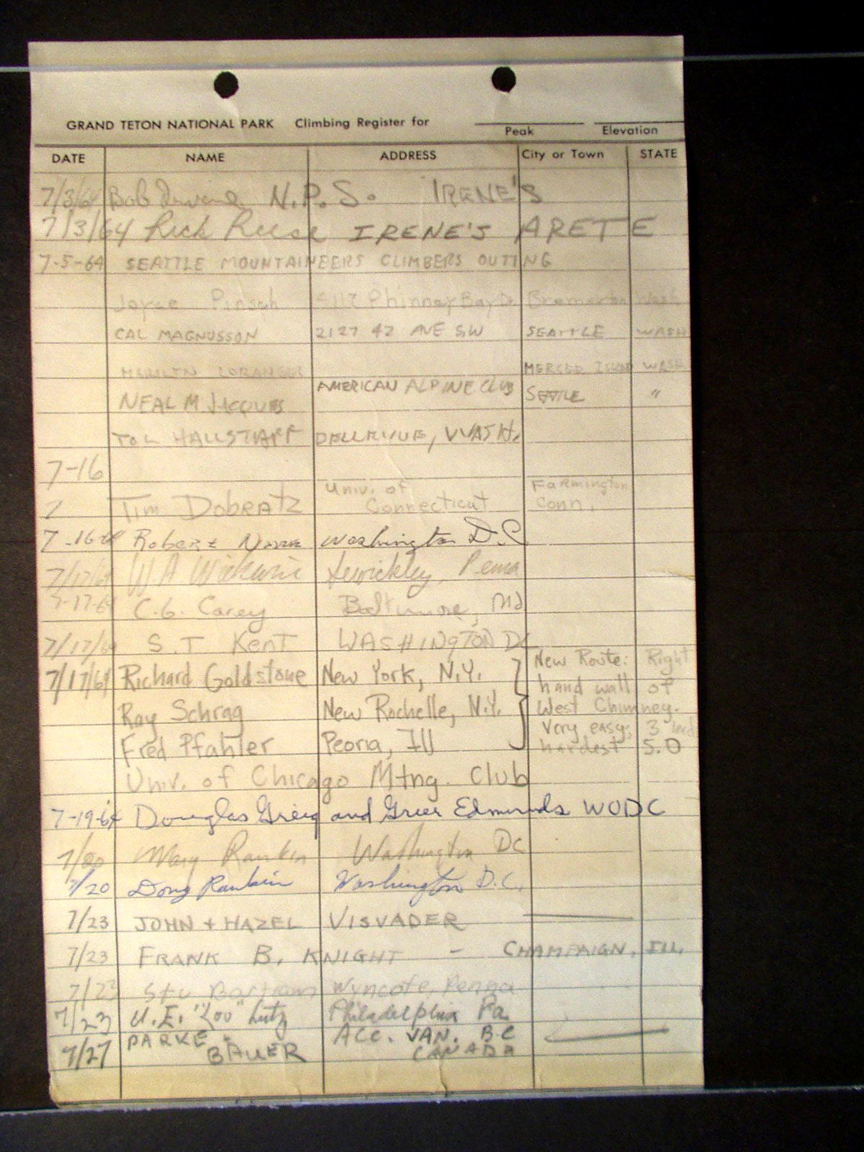 GRAND TETON NATIONAL PARK Climbing Register for
Peak Elevation
DATE NAME ADDRESS City or Town STATE
7/3/64 Bob N.P.S. IRENE'S
7/3/64 Rick Reese IRENE'S ARETE
7-5-64 SEATTLE MOUNTAINEERS CLIMBERS OUTING
Joyce Pinsch Phinney Bay Dr Bremerton Wash
CAL MAGNUSSON 2127 42 AVE SW SEATTLE WASH
MERCED ISLAND WASH
NEAL M JACQUES AMERICAN ALPINE CLUB SEATTLE "
HALLSTAFF BELLEVUE, WASH.
7-16
7 Tim Dobratz Univ. of Connecticut Farmington Conn.
7-16-64 Robert Washington D.C
7/17/64 W A Sewickley, Penna
7-17-64 C.G. Carey Baltimore, Md
7/17/64 S.T KENT WASHINGTON DC
7/17/64 Richard Goldstone New York, N.Y. New Route: Right
hand wall of
Ray Schrag New Rochelle, N.Y. West Chimney.
Very easy; 3
Fred Pfahler Peoria, Ill hardest 5.0
Univ. of Chicago Mtng. Club
7-19-64 Douglas Greig and Greer Edmunds WODC
7/20 Mary Rankin Washington DC
7/20 Doug Rankin Washington D.C.
7/23 JOHN + HAZEL VISVADER
7/23 FRANK B. KNIGHT - CHAMPAIGN, ILL.
7/23 Stu Bartram Wyncote, Penna
7/23 U.E. "Lou" Lutz Philadelphia Pa
7/27 PARKE + BAUER ACC. VAN. B.C
CANADA